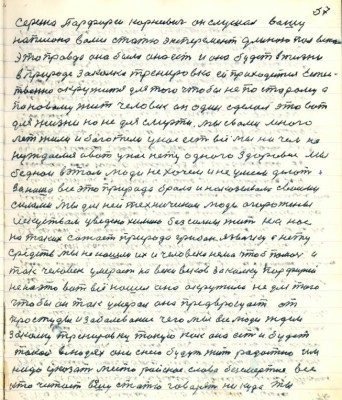 57
Серёжа Парфирий корнивич он слушал вашу
написано вами статю эксперемент длиною пол века
это правда она была она есть и она будет в жизни
в природе закалка тренировка ей приходится естес-
твенно окружит для того чтобы не по старому а
по новому жит человек он один сделал это вот
для жизни но не для смерти. мы своим много
лет жили и богатели у нас есть всё мы ни чем не
нуждаемся а вот у нас нету одного здоровья мы
бедном в этом люди не хочем и не умеем делат
все это природа брала и наказывала своими
силами мы для ней техничные люди
искуством без силы жит на нас
на таких сажает природа язвочку нету
средств мы не нашли их и человека нема чтоб помог и
так человек умирает на веки веков закалку Парфирий
не на это вот всё нашел она окружила не для того
чтобы он так умирал она предвросудет от
простуды и заболевание чего мы все люди ждем
закалку тренировку такую как она есть и будет
такой в людях она с нею будут жит радостно им
надо сказат место райское слова бессмертия все
кто читает вашу статю говорят не куда ты